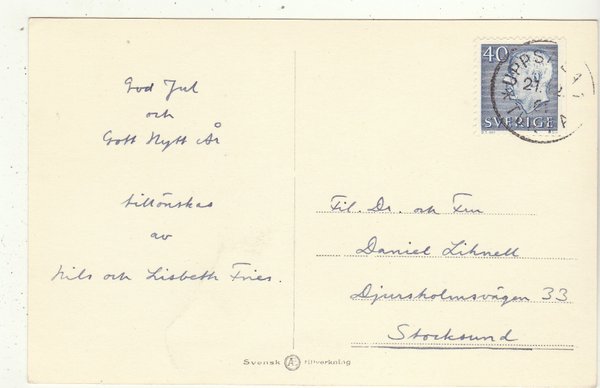 God Jul
och
Gott Nytt År
tillönskas
av
Nils och Lisbeth Fries.
40
SVERIGE
UPPSALA 1
21
Fil. Dr. och Fru
Daniel Lihnell
Djursholmsvägen 33
Stocksund
Svensk A tillverkning